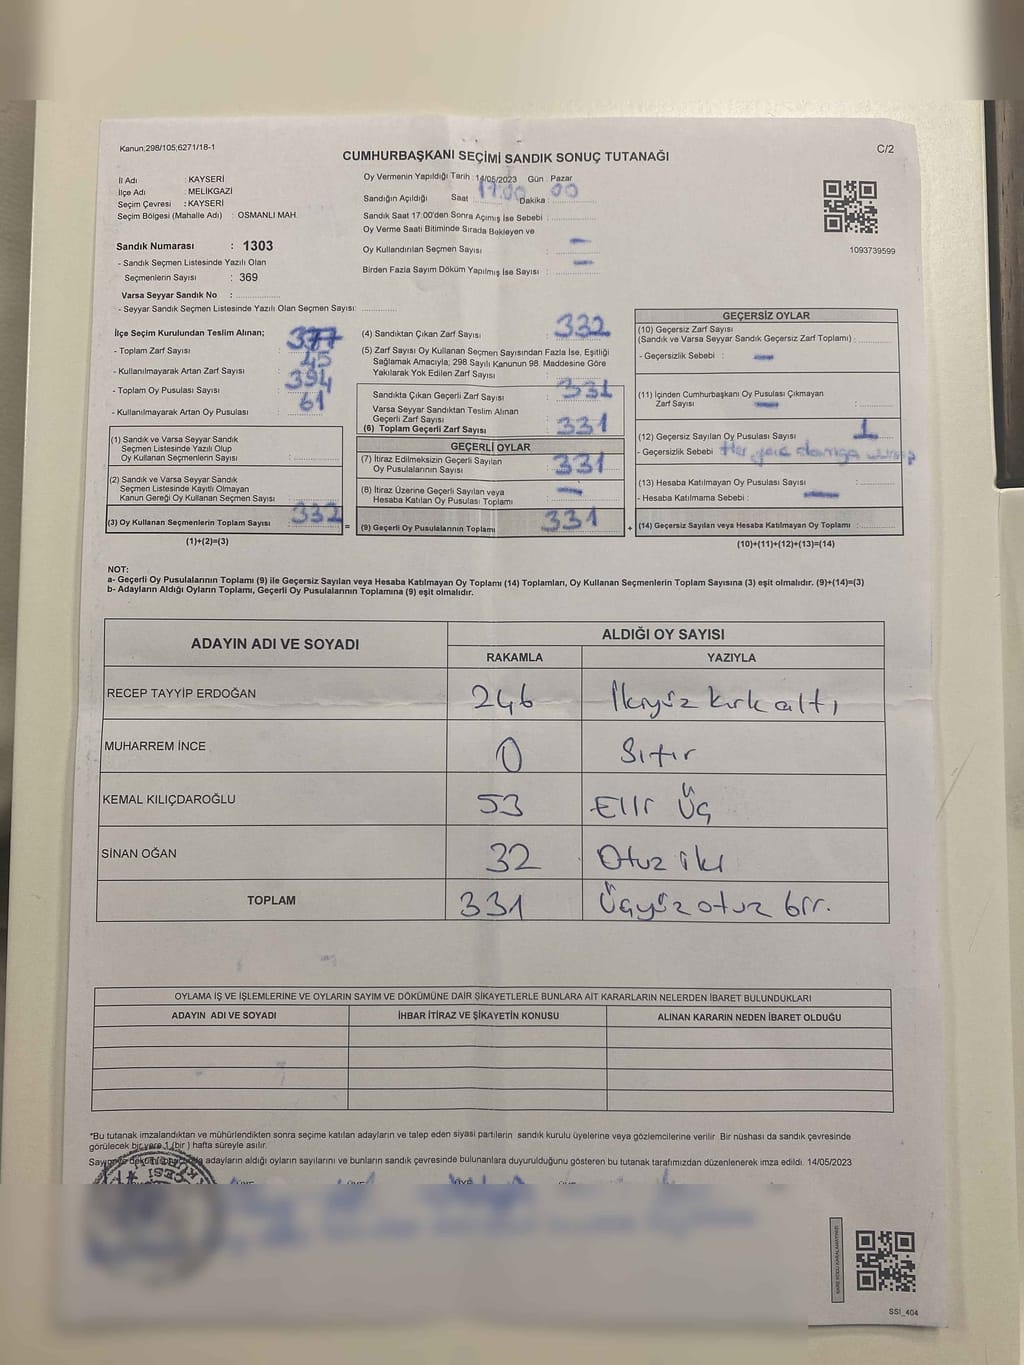 Kanun:298/105,6271/18-1
C/2
CUMHURBAŞKANI SEÇİMİ SANDIK SONUÇ TUTANAĞI
İl Adı : KAYSERİ
İlçe Adı : MELİKGAZİ
Seçim Çevresi : KAYSERİ
Seçim Bölgesi (Mahalle Adı) : OSMANLI MAH.
Sandık Numarası : 1303
- Sandık Seçmen Listesinde Yazılı Olan
Seçmenlerin Sayısı : 369
Varsa Seyyar Sandık No :
- Seyyar Sandık Seçmen Listesinde Yazılı Olan Seçmen Sayısı:
Oy Vermenin Yapıldığı Tarih : 14/05/2023 Gün : Pazar
Sandığın Açıldığı Saat 17:00 Dakika : 00
Sandık Saat 17:00'den Sonra Açımış İse Sebebi :
Oy Verme Saati Bitiminde Sırada Bekleyen ve
Oy Kullandırılan Seçmen Sayısı : —
Birden Fazla Sayım Döküm Yapılmış İse Sayısı : —
1093739599
İlçe Seçim Kurulundan Teslim Alınan;
- Toplam Zarf Sayısı : 377
- Kullanılmayarak Artan Zarf Sayısı : 45
- Toplam Oy Pusulası Sayısı : 394
- Kullanılmayarak Artan Oy Pusulası : 61
(1) Sandık ve Varsa Seyyar Sandık
Seçmen Listesinde Yazılı Olup
Oy Kullanan Seçmenlerin Sayısı :
(2) Sandık ve Varsa Seyyar Sandık
Seçmen Listesinde Kayıtlı Olmayan
Kanun Gereği Oy Kullanan Seçmen Sayısı :
(3) Oy Kullanan Seçmenlerin Toplam Sayısı : 332 =
(1)+(2)=(3)
(4) Sandıktan Çıkan Zarf Sayısı : 332
(5) Zarf Sayısı Oy Kullanan Seçmen Sayısından Fazla İse, Eşitliği
Sağlamak Amacıyla; 298 Sayılı Kanunun 98. Maddesine Göre
Yakılarak Yok Edilen Zarf Sayısı :
Sandıkta Çıkan Geçerli Zarf Sayısı : 331
Varsa Seyyar Sandıktan Teslim Alınan
Geçerli Zarf Sayısı :
(6) Toplam Geçerli Zarf Sayısı : 331
GEÇERLİ OYLAR
(7) İtiraz Edilmeksizin Geçerli Sayılan
Oy Pusulalarının Sayısı : 331
(8) İtiraz Üzerine Geçerli Sayılan veya
Hesaba Katılan Oy Pusulası Toplamı : —
(9) Geçerli Oy Pusulalarının Toplamı : 331 +
GEÇERSİZ OYLAR
(10) Geçersiz Zarf Sayısı
(Sandık ve Varsa Seyyar Sandık Geçersiz Zarf Toplamı) :
- Geçersizlik Sebebi : —
(11) İçinden Cumhurbaşkanı Oy Pusulası Çıkmayan
Zarf Sayısı : —
(12) Geçersiz Sayılan Oy Pusulası Sayısı : 1
- Geçersizlik Sebebi : Her yere damga
(13) Hesaba Katılmayan Oy Pusulası Sayısı :
- Hesaba Katılmama Sebebi : —
(14) Geçersiz Sayılan veya Hesaba Katılmayan Oy Toplamı :
(10)+(11)+(12)+(13)=(14)
NOT:
a- Geçerli Oy Pusulalarının Toplamı (9) ile Geçersiz Sayılan veya Hesaba Katılmayan Oy Toplamı (14) Toplamları, Oy Kullanan Seçmenlerin Toplam Sayısına (3) eşit olmalıdır. (9)+(14)=(3)
b- Adayların Aldığı Oyların Toplamı, Geçerli Oy Pusulalarının Toplamına (9) eşit olmalıdır.
ADAYIN ADI VE SOYADI ALDIĞI OY SAYISI
RAKAMLA YAZIYLA
RECEP TAYYİP ERDOĞAN 246 İkiyüz kırk altı
MUHARREM İNCE 0 Sıfır
KEMAL KILIÇDAROĞLU 53 Elli Üç
SİNAN OĞAN 32 Otuz iki
TOPLAM 331 Üçyüz otuz bir.
OYLAMA İŞ VE İŞLEMLERİNE VE OYLARIN SAYIM VE DÖKÜMÜNE DAİR ŞİKAYETLERLE BUNLARA AİT KARARLARIN NELERDEN İBARET BULUNDUKLARI
ADAYIN ADI VE SOYADI İHBAR İTİRAZ VE ŞİKAYETİN KONUSU ALINAN KARARIN NEDEN İBARET OLDUĞU
*Bu tutanak imzalandıktan ve mühürlendikten sonra seçime katılan adayların ve talep eden siyasi partilerin sandık kurulu üyelerine veya gözlemcilerine verilir. Bir nüshası da sandık çevresinde
görülecek bir yere 1 (bir ) hafta süreyle asılır.
Sayım ve döküm adayların aldığı oyların sayılarını ve bunların sandık çevresinde bulunanlara duyurulduğunu gösteren bu tutanak tarafımızdan düzenlenerek imza edildi. 14/05/2023
SSI_404